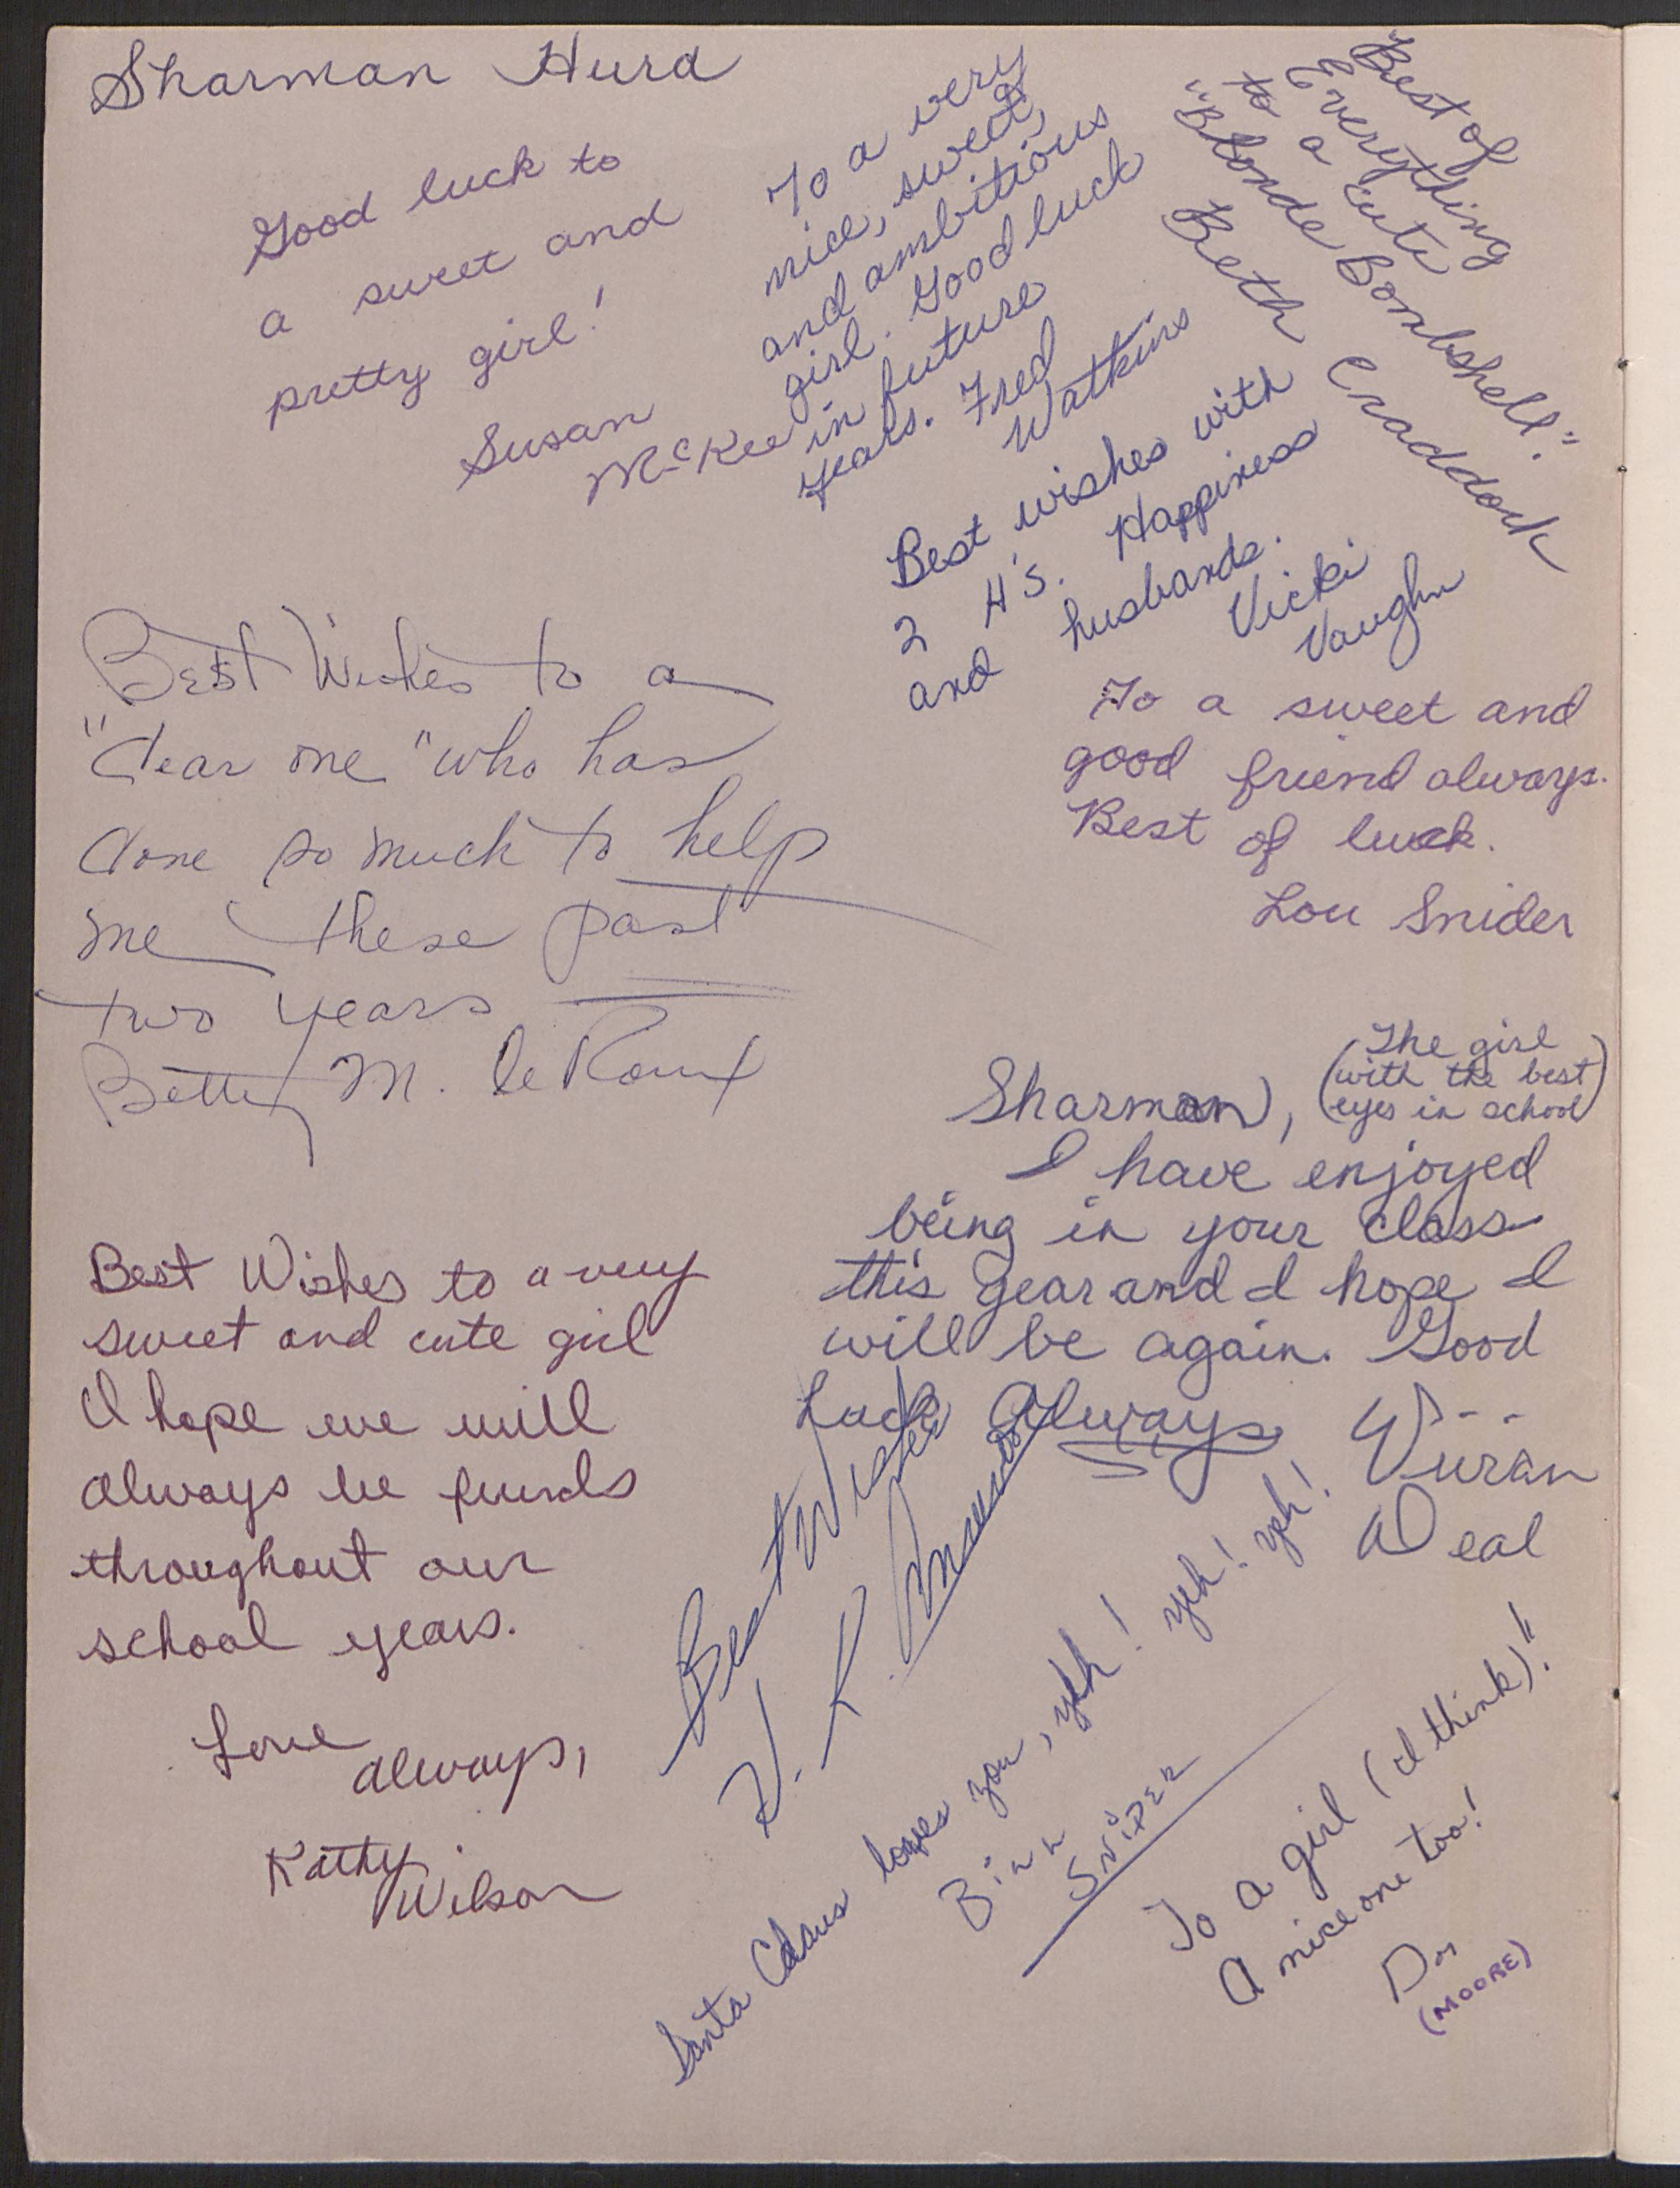 Sharman Hurd
Good luck to
a sweet and
pretty girl!
Susan
McKee
To a very
nice, sweet,
and ambitious
girl. Good luck
in future
years. Fred
Watkins
Best of
Everything
to a cute
"Blonde Bombshell".
Beth Craddock
Best wishes with
2 H's. Happiness
and husbands.
Vicki
Vaughn
Best Wishes to a
"dear one" who has
done so much to help
me these past
two years
Betty M. le Roux
To a sweet and
good friend always.
Best of luck.
Lou Snider
Sharman, (The girl
with the best
eyes in school)
I have enjoyed
being in your class
this year and I hope I
will be again. Good
Luck Always
Deal
Best Wishes to a very
sweet and cute girl
I hope we will
always be friends
throughout our
school years.
Love
always,
Kathy
Wilson
Best Wishes
K.
Santa Claus loves you, yeh! yeh! yeh!
SNiPER
To a girl (I think)!!
A nice one too!
(MOORE)